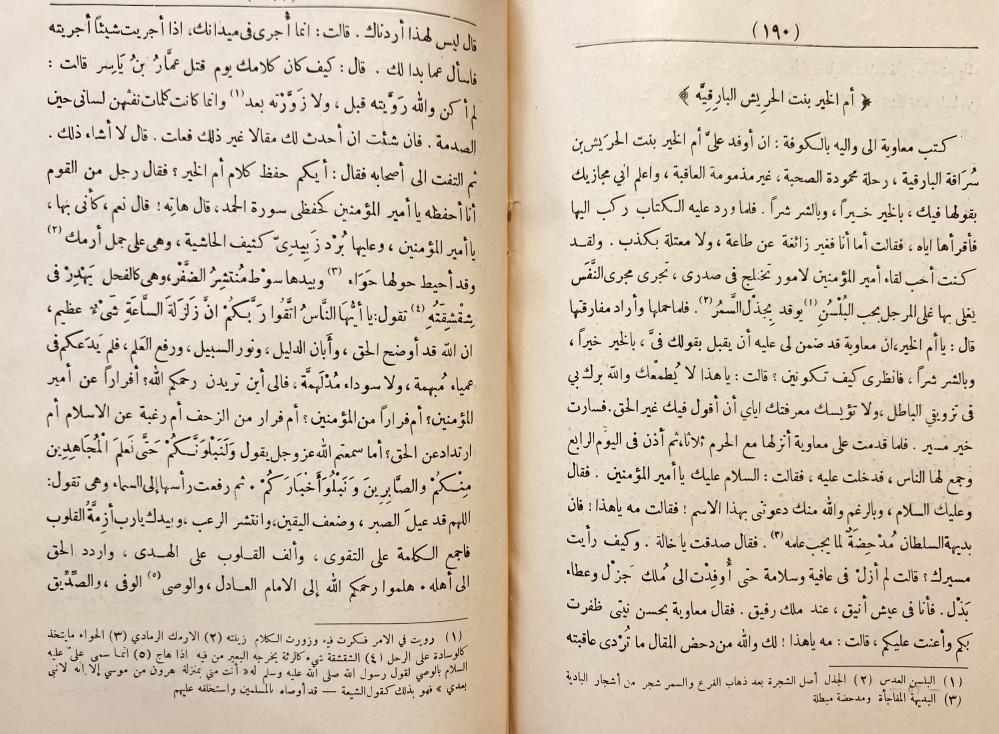 (١٩٠)
﴿ أم الخير بنت الحريش البارقيَّه ﴾
كتب معاوية الى واليه بالكوفة : ان أوفد علىَّ أم الخير بنت الحَريش بن
سُرَاقة البارقية ، رحلة محمودة الصحبة ، غير مذمومة العاقبة ، واعلم اني مجازيك
بقولها فيك ، بالخير خيراً ، وبالشر شراً . فلما ورد عليه الكتاب ركب اليها
فأقرأها اياه ، فقالت أما أنا فغير زائغة عن طاعة ، ولا معتلة بكذب . ولقد
كنت أحب لقاء أمير المؤمنين لامور تختلج فى صدرى ، تجرى مجرى النَّفَس
يغلى بها غلى المرجل بحب البُلْسُن (١) يوقد بجذل السمُر (٢) . فلما حملها وأراد مفارقتها
قال : يا أم الخير ، ان معاوية قد ضمن لى عليه أن يقبل بقولك فىَّ ، بالخير خيراً ،
وبالشر شراً ، فانظرى كيف تكونين ؟ قالت : ياهذا لا يُطمعك والله برك بي
فى تزويقي الباطل ، ولا تؤيسك معرفتك اياي أن أقول فيك غير الحق . فسارت
خير مسير . فلما قدمت على معاوية أنزلها مع الحرم ثلاثاً ، ثم أذن فى اليوم الرابع
وجمع لها الناس ، فدخلت عليه ، فقالت : السلام عليك يا أمير المؤمنين . فقال
وعليك السلام ، وبالرغم والله منك دعوتنى بهذا الاسم ! فقالت مه ياهذا ! فان
بديهة السلطان مُدْحِضَةٌ لما يجب علمه (٣) . فقال صدقت ياخالة . وكيف رأيت
مسيرك ؟ قالت لم أزل فى عافية وسلامة حتى أُوفِدْت الى مُلك جَزْل وعطاء
بَذْل . فأنا فى عيش أنيق ، عند ملك رفيق . فقال معاوية بحسن نيتى ظفرت
بكم وأعنت عليكم ، قالت : مه ياهذا ! لك والله من دحض المقال ما تُرْدى عاقبته
(١) البلسن العدس (٢) الجذل أصل الشجرة بعد ذهاب الفرع والسمر شجر من أشجار البادية
(٣) البديهة المفاجأة ومدحضة مبطلة
قال ليس لهذا أردناك . قالت : انما أُجرى فى ميدانك ، اذا أجريت شيئاً أجريته
فاسأل عما بدا لك . قال : كيف كان كلامك يوم قتل عمَّارُ بنُ يَاسِر قالت :
لم أكن والله رَوَّيته قبل ، ولا زَوَّرْته بعد (١) وانما كانت كلمات نفثهن لسانى حين
الصدمة . فان شئت أن أحدث لك مقالا غير ذلك فعلت . قال لا أشاء ذلك .
ثم التفت الى أصحابه فقال : أيكم حفظ كلام أم الخير ؟ فقال رجل من القوم
أنا أحفظه يا أمير المؤمنين كحفظى سورة الحمد ، قال هاتِه ! قال نعم ، كأنى بها ،
يا أمير المؤمنين ، وعليها بُرْد زَبِيدِىّ كثيف الحاشية ، وهى على جمل أرمك (٢)
وقد أحيط حولها حوَاء (٣) وبيدها سوْط مُنتشِرُ الضَّفْر ، وهى كالفحل يَهْدِرُ فى
شِقْشقَتِه (٤) تقول : يا أيُّهَا النَّاسُ اتَّقُوا رَبَّكُمْ انَّ زَلزَلَةَ السَّاعَةِ شَىْءٌ عظيم ،
ان الله قد أوضح الحق ، وأبان الدليل ، ونور السبيل ، ورفع العلم ، فلم يَدَعكم فى
عمياء مُبهمة ، ولا سوداء مُدْلَهِمَّة ، فالى أين تريدن رحمكم الله ؟ أفراراً عن أمير
المؤمنين ؟ أم فراراً من المؤمنين ؟ أم فرار من الزحف أم رغبة عن الاسلام أم
ارتداد عن الحق ؟ أما سمعتم الله عز وجل يقول وَلَنَبْلُوَنَّكُمْ حَتَّى نَعْلَمَ الْمُجَاهِدِينَ
مِنْكُمْ وَالصَّابِرِينَ وَنَبْلُوَ أَخْبَارَكُمْ . ثم رفعت رأسها إلى السماء وهى تقول :
اللهم قد عيل الصبر ، وضعف اليقين ، وانتشر الرعب ، وبيدك يارب أزمةُ القلوب
فاجمع الكلمة على التقوى ، وألف القلوب على الهدى ، واردد الحق
الى أهله . هلموا رحمكم الله إلى الامام العادل ، والوصى (٥) الوفى ، والصِّدِّيق
(١) رويت في الامر فكرت فيه وزورت الكلام زينته (٢) الارمك الرمادي (٣) الحواء مايتخذ
كالوسادة على الرحل (٤) الشقشقة شيء كالرئة يخرجه البعير من فيه اذا هاج (٥) انما سمى علىّ عليه
السلام بالوصي لقول رسول الله صلى الله عليه وسلم له « أنت مني بمنزلة هرون من موسى إلا انه لانبي
بعدي » فهو بذلك كقول الشيعة — قد أوصاه بالمسلمين واستخلفه عليهم